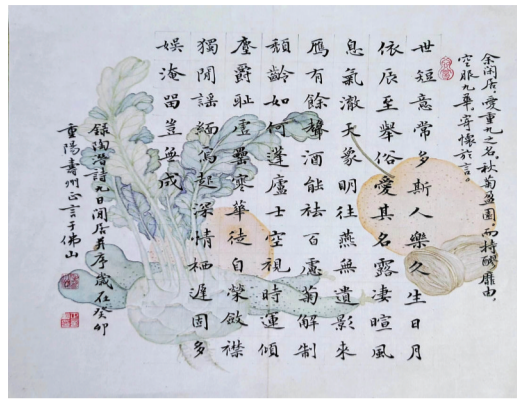 余闲居,愛重九之名,秋菊盈園,而持醪靡由,
空服九華,寄懷於言。
世短意常多斯人樂久生日月
依辰至舉俗愛其名露凄暄風
息氣澈天象明往燕無遺影來
雁有餘聲酒能祛百慮菊解制
頹齡如何蓬廬士空視時運傾
塵爵恥虛罍寒華徒自榮斂襟
獨閒謠緬焉起深情栖遲固多
娛淹留豈無成
錄陶潛詩九日閒居并序歲在癸卯
重陽壽州正言于佛山